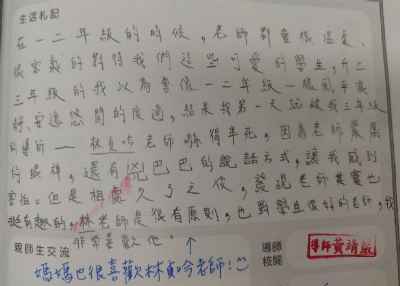 生活札記
在一二年級的時候,老師都會很溫柔、
很寬容的對待我們這些可愛的學生,升上
三年級的我以為會像一二年級一般風平浪
靜、安逸悠閒的度過,結果我第一天就被我三年級
的導師——林貞吟老師嚇得半死,因為老師嚴肅
的眼神,還有凶巴巴的說話方式,讓我感到
害怕。但是相處久了之後,發現老師其實也
挺有趣的,林老師是很有原則,也對學生很好的老師,我
非常喜歡他。↑
親師生交流
媽媽也很喜歡林貞吟老師!
導師
核閱
導師黃靖